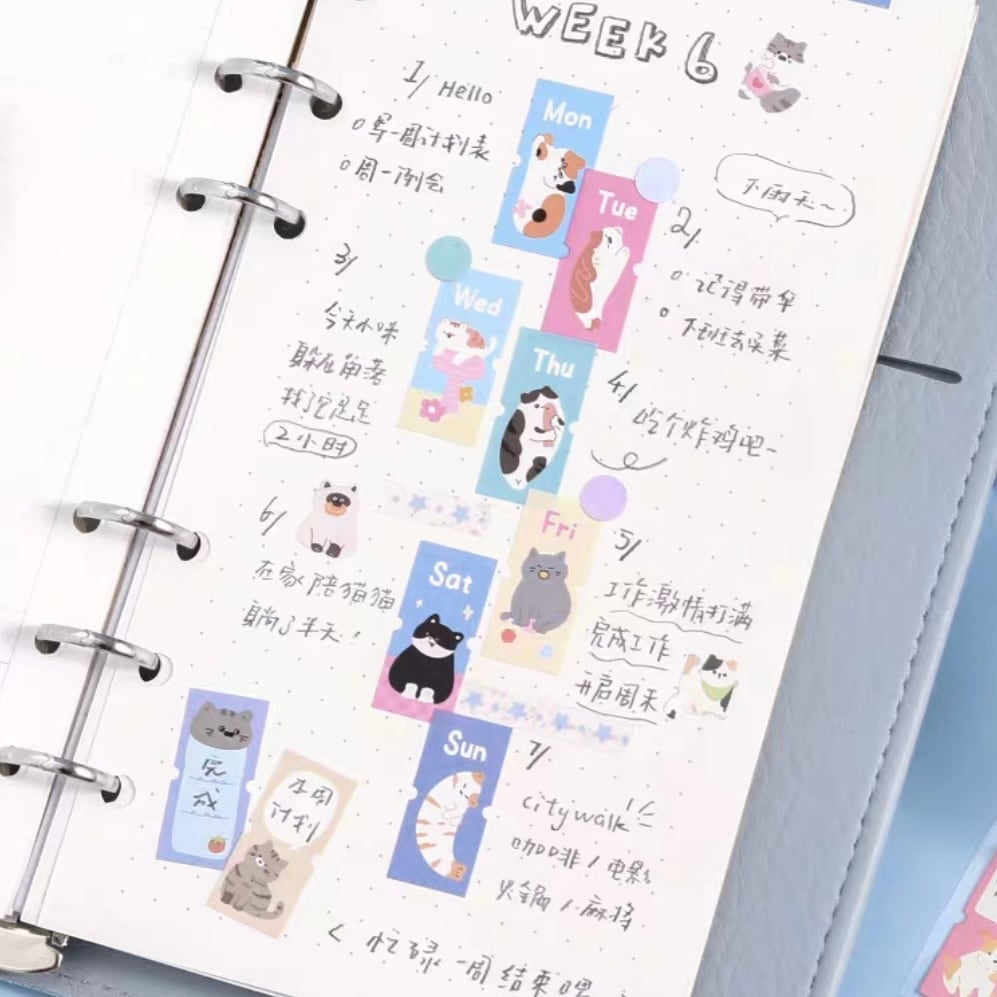 WEEK 6
1/ Hello
Mon
o 写一周计划表
o 周一例会
下雨天~
Tue
2/
o 记得带伞
o 下班去买菜
3/
Wed
今天小咪
躲在角落
找了它足足
2小时
Thu
4/
吃个炸鸡吧~
6/
Fri
5/
在家陪猫猫
躺了半天!
Sat
工作激情打满
完成工作
开启周末
完
成
本周
计划
Sun
7/
citywalk
咖啡/电影
火锅/麻将
< 忙碌一周结束